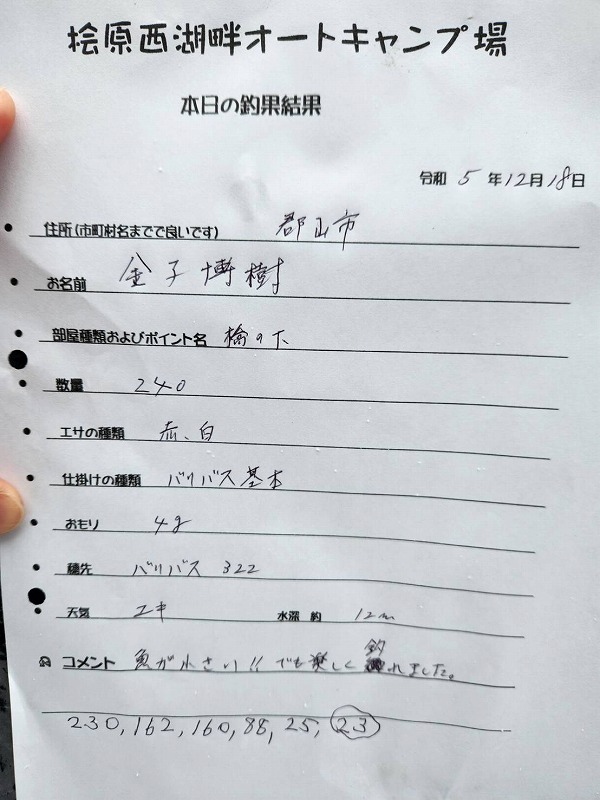 桧原西湖畔オートキャンプ場
本日の釣果結果
令和 5 年 12月 18日
住所(市町村名までで良いです) 郡山市
お名前 金子博樹
部屋種類およびポイント名 檜の下
数量 240
エサの種類 赤、白
仕掛けの種類 バリバス基本
おもり 4g
穂先 バリバス 322
天気 ユキ 水深 約 12m
コメント 魚が小さい!! でも楽しく釣れました。
230, 162, 160, 88, 25, 23